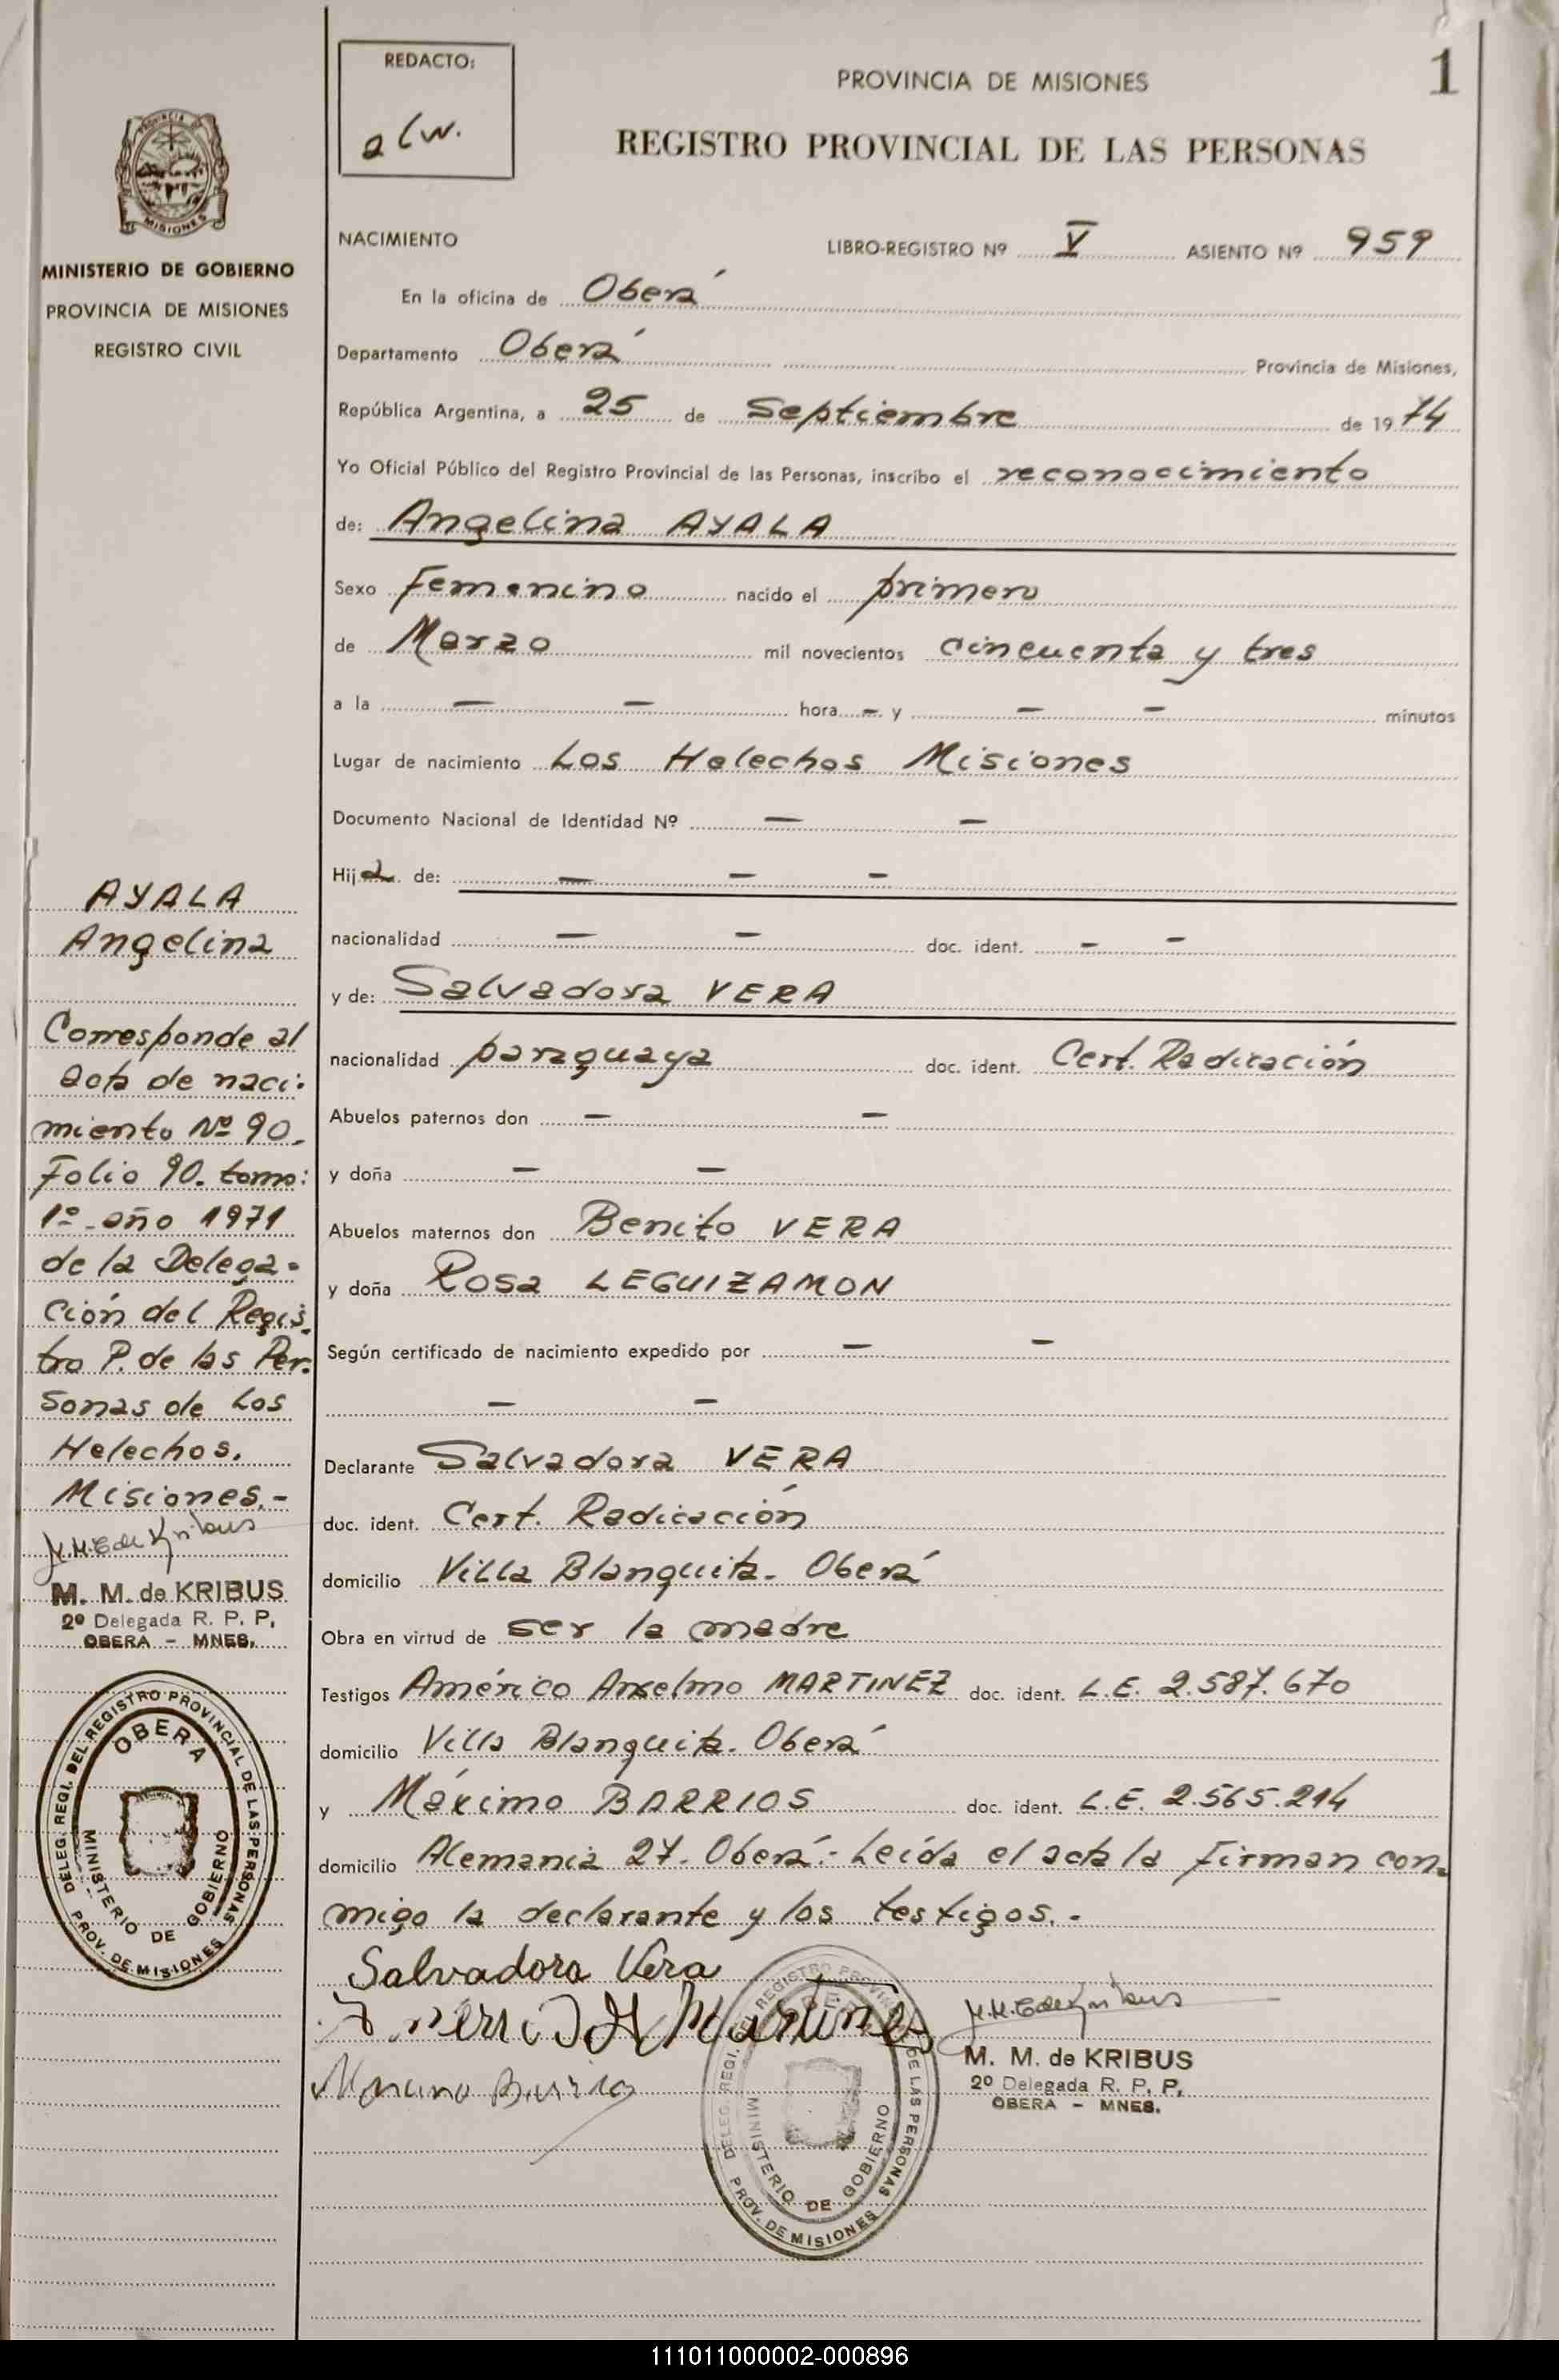 REDACTO:
alw.
PROVINCIA DE MISIONES
1
REGISTRO PROVINCIAL DE LAS PERSONAS
MISIONES
MINISTERIO DE GOBIERNO
PROVINCIA DE MISIONES
REGISTRO CIVIL
AYALA
Angelina
Corresponde al
acta de naci-
miento Nº 90.
Folio 90. tomo:
1º año 1971
de la Delega-
ción del Regis-
tro P. de las Per-
sonas de Los
Helechos.
Misiones.-
M. M. de KRIBUS
2º Delegada R. P. P.
OBERA - MNES.
DELEG. REGI. DEL REGISTRO PROVINCIAL DE LAS PERSONAS
OBERA
MINISTERIO DE GOBIERNO
PROV. DE MISIONES
NACIMIENTO LIBRO-REGISTRO Nº V ASIENTO Nº 959
En la oficina de Oberá
Departamento Oberá Provincia de Misiones,
República Argentina, a 25 de Septiembre de 1974
Yo Oficial Público del Registro Provincial de las Personas, inscribo el reconocimiento
de: Angelina AYALA
Sexo Femenino nacido el primero
de Marzo mil novecientos cincuenta y tres
a la — — hora — y — — minutos
Lugar de nacimiento Los Helechos Misiones
Documento Nacional de Identidad Nº — —
Hija de: — — —
nacionalidad — — doc. ident. — —
y de: Salvadora VERA
nacionalidad paraguaya doc. ident. Cert. Radicación
Abuelos paternos don — —
y doña — —
Abuelos maternos don Benito VERA
y doña Rosa LEGUIZAMON
Según certificado de nacimiento expedido por — —
— —
Declarante Salvadora VERA
doc. ident. Cert. Radicación
domicilio Villa Blanquita. Oberá
Obra en virtud de ser la madre
Testigos Américo Anselmo MARTINEZ doc. ident. L.E. 2.587.670
domicilio Villa Blanquita. Oberá
y Máximo BARRIOS doc. ident. L.E. 2.565.214
domicilio Alemania 27. Oberá.- Leída el acta la firman con-
migo la declarante y los testigos.-
Salvadora Vera
M. M. de KRIBUS
2º Delegada R. P. P.
OBERA - MNES.
MINISTERIO DE GOBIERNO
PROV. DE MISIONES
111011000002-000896